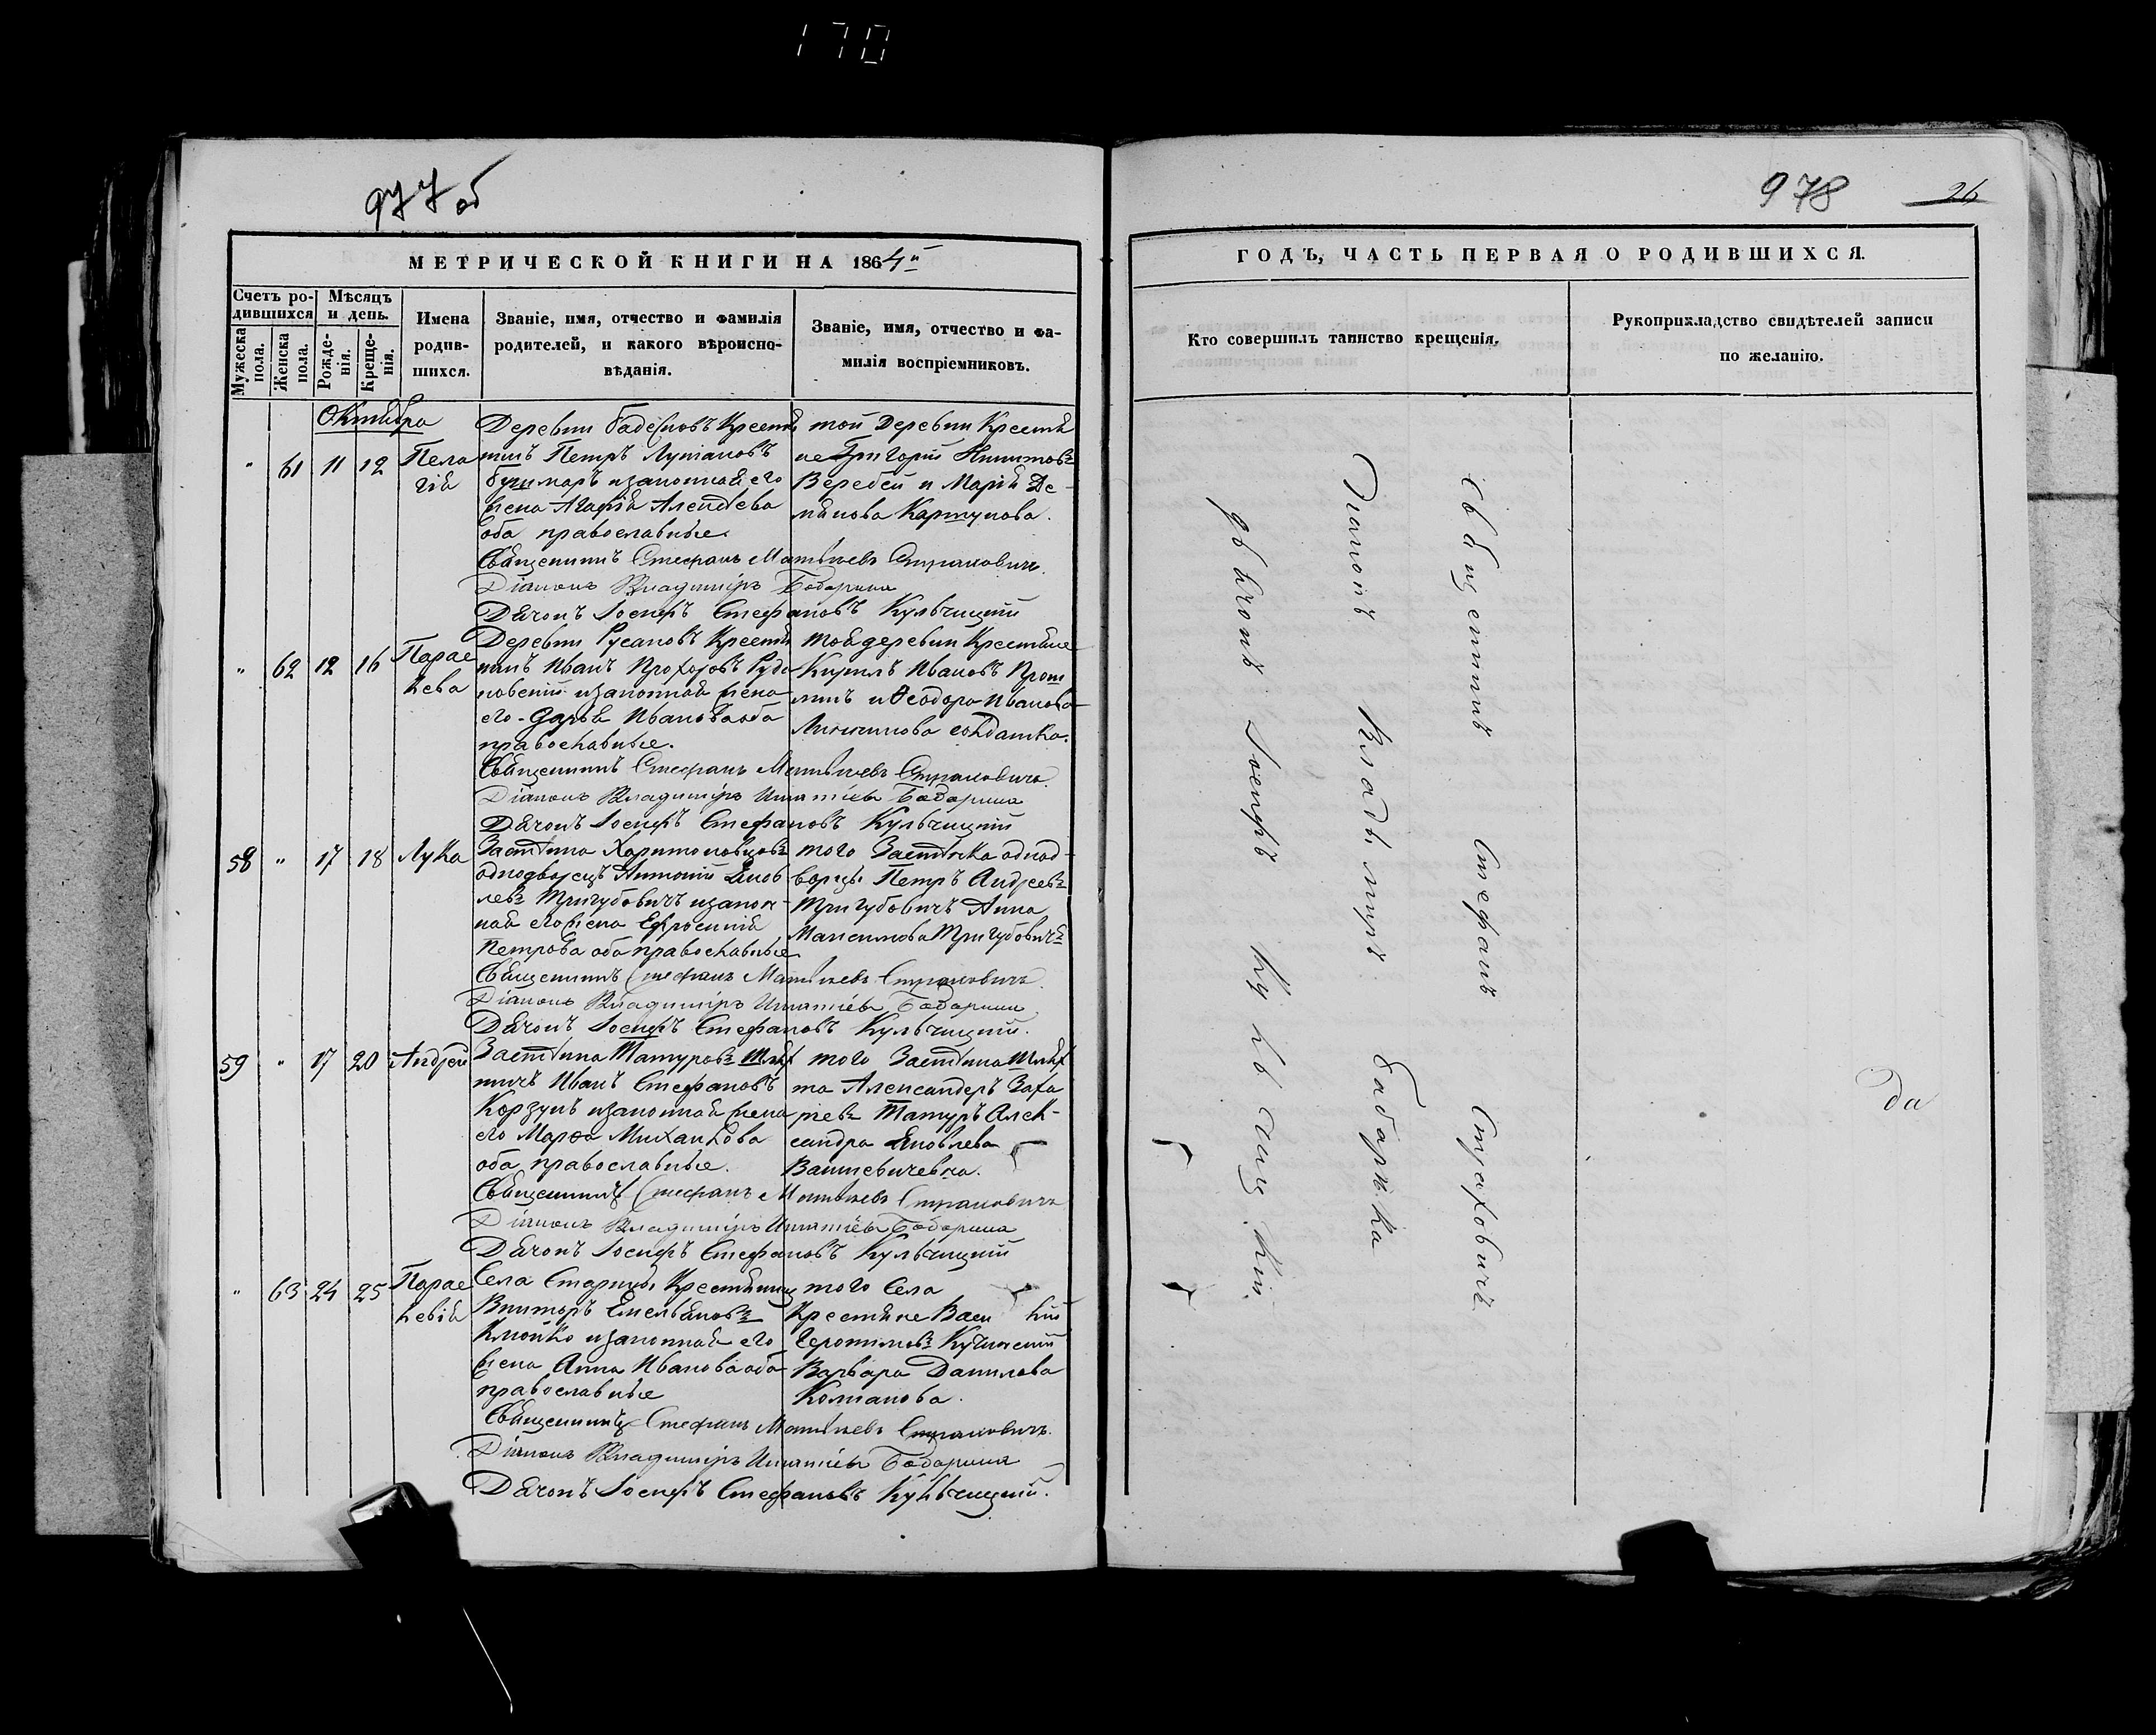 170
977 об
МЕТРИЧЕСКОЙ КНИГИ НА 1864й
Счетъ ро-
дившихся
Мѣсяцъ
и день.
Мужеска
пола.
Женска
пола.
Рожде-
нія.
Креще-
нія.
Имена
родив-
шихся.
Званіе, имя, отчество и фамилія
родителей, и какого вѣроиспо-
вѣданія.
Званіе, имя, отчество и фа-
милія воспріемниковъ.
Октября
" 61 11 12
Пела
гія
Деревни Крестя
нинъ Петръ Лукіановъ
и законная его
жена Агафія Алексѣева
оба православные.
той Деревни Крестя
не Григорій Никитовъ
Веребей и Марія Де-
мянова Картунова.
Священникъ Стефанъ Матвѣевъ Страховичъ.
Діаконъ Владиміръ Бабарика
Дячокъ Іосифъ Стефановъ Кульчицкій
" 62 12 16
Парас
кева
Деревни Русановъ Крестя
нинъ Иванъ Прохоровъ Руда
ковскій и законная жена
его Дарья Иванова оба
православные.
тойже деревни Крестяне
Кирилъ Ивановъ
и Ѳеодора Иванова
солдатка.
Священникъ Стефанъ Матвѣевъ Страховичъ
Діаконъ Владиміръ Игнатіевъ Бабарика
Дячокъ Іосифъ Стефановъ Кульчицкій
58 " 17 18
Лука
Застѣнка Харитоновцовъ
однодворецъ Антоній Яков
левъ Тригубовичъ и закон-
ная его жена Ефросинія
Петрова оба православные
того Застѣнка однод-
ворцы Петръ Андреевъ
Тригубовичъ Анна
Максимова Тригубовичъ
Священникъ Стефанъ Матвѣевъ Страховичъ.
Діаконъ Владиміръ Игнатіевъ Бабарика
Дячокъ Іосифъ Стефановъ Кульчицкій.
59 " 17 20
Андрей
Застѣнка Татуровъ Шлях
тичъ Иванъ Стефановъ
Корзунъ и законная жена
его Марѳа Михайлова
оба православные.
того Застѣнка Шлях
та Александеръ Заха
ріевъ Татуръ Алек-
сандра Яковлева
Ваткевичевна.
Священникъ Стефанъ Матвѣевъ Страховичъ
Діаконъ Владиміръ Игнатіевъ Бабарика
Дячокъ Іосифъ Стефановъ Кульчицкій
" 63 24 25
Парас
кевія
Села Старицы Крестянинъ
Викторъ Емельяновъ
Клочко и законная его
жена Анна Иванова оба
православные
того Села
Крестяне Васи лій
Іеронимовъ
Варвара Данилова
Колпакова.
Священникъ Стефанъ Матвѣевъ Страховичъ.
Діаконъ Владиміръ Игнатіевъ Бабарика
Дячокъ Іосифъ Стефановъ Кульчицкій.
978
26
ГОДЪ, ЧАСТЬ ПЕРВАЯ О РОДИВШИХСЯ.
Кто совершилъ таинство крещенія.
Рукоприкладство свидѣтелей записи
по желанію.
священникъ Стефанъ Страховичъ
Діаконъ Владиміръ Бабарика
дьячокъ Іосифъ Кульчицкій
да